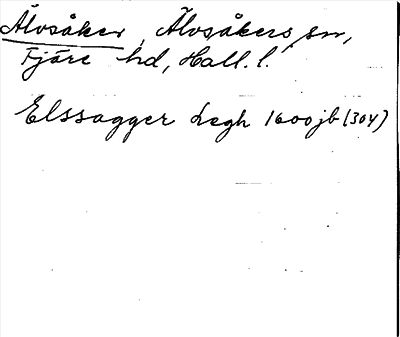 Älvsåker, Älvsåkers sn,
Fjäre hd, Hall. l.
Elssagger Legh 1600 jb (304)